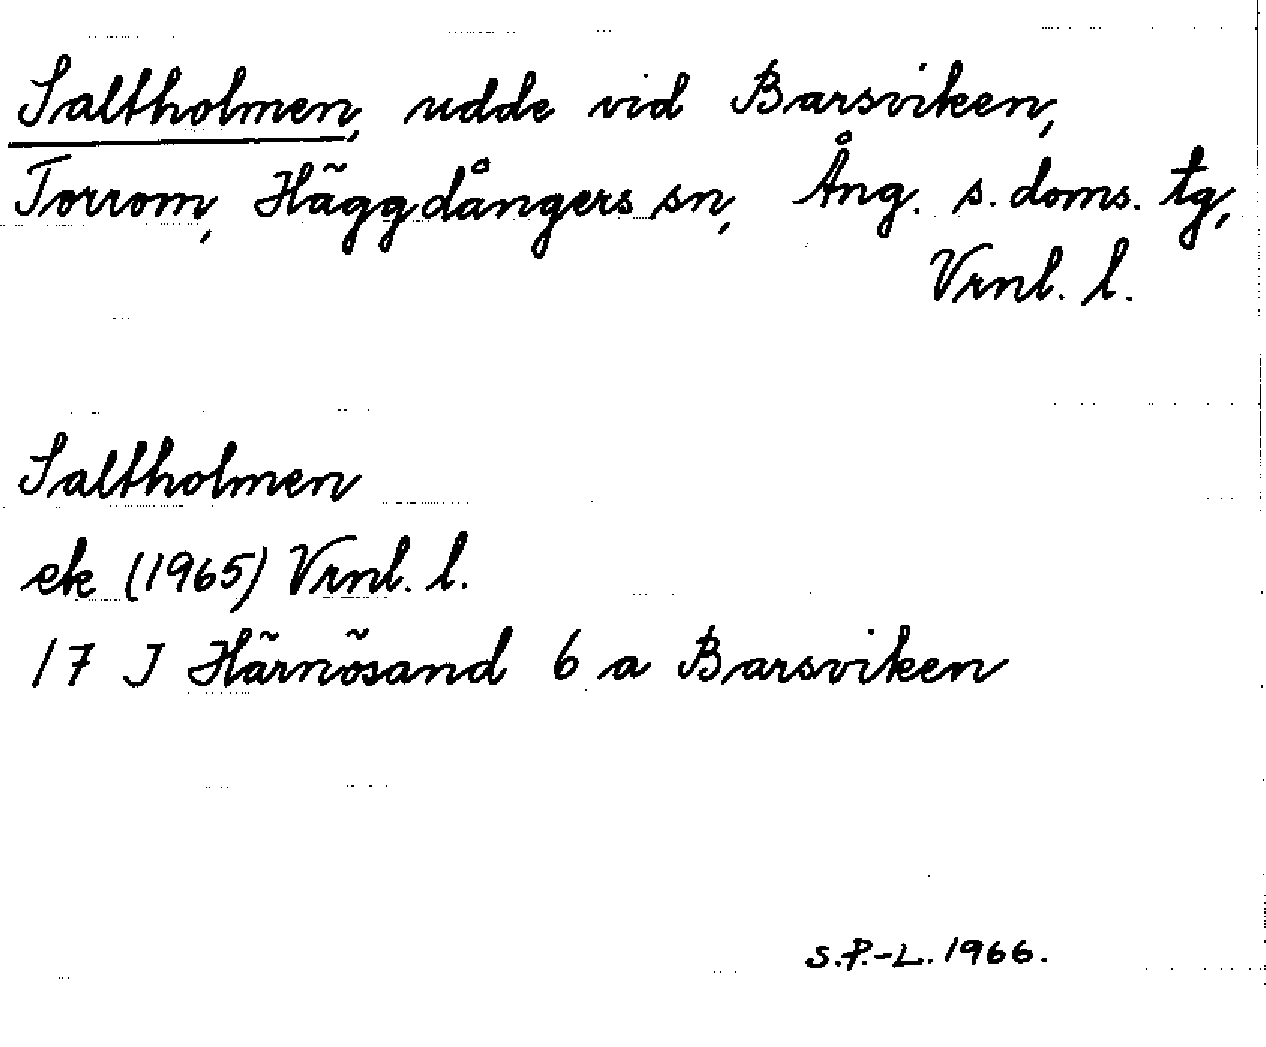 Saltholmen, udde vid Barsviken,
Torrom, Häggdångers sn, Ång. s. doms. tg,
Vrnl. l.
Saltholmen
ek (1965) Vrnl. l.
17 J Härnösand 6 a Barsviken
S.P.-L. 1966.